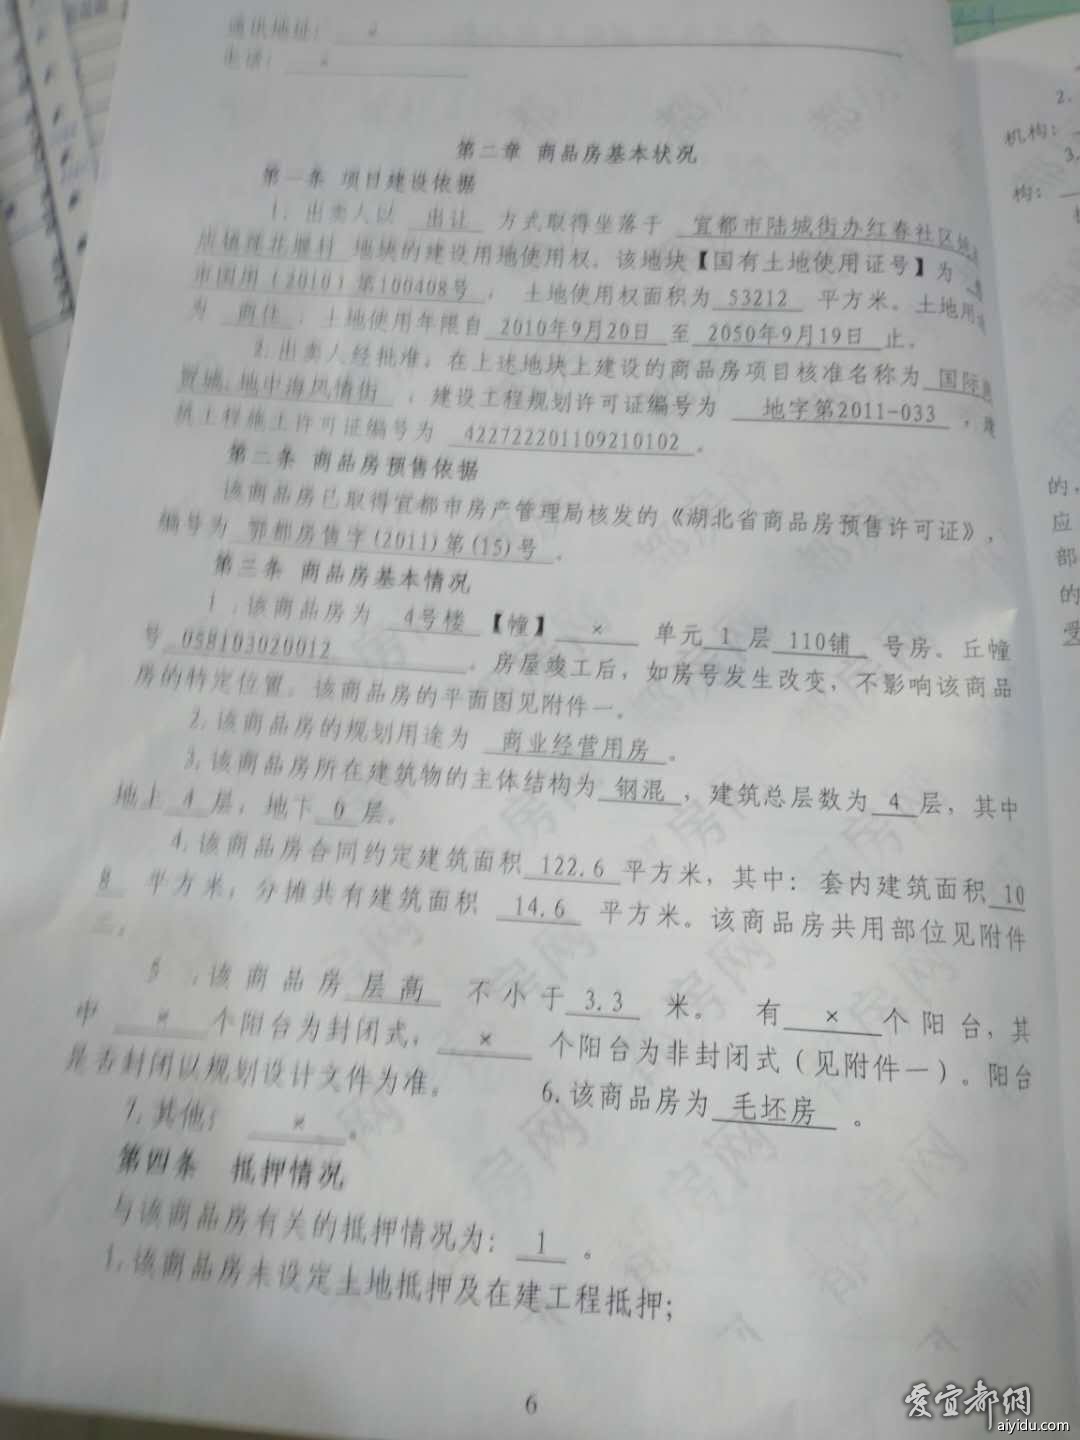 通讯地址：
电话： ×
第二章 商品房基本状况
第一条 项目建设依据
1. 出卖人以 出让 方式取得坐落于 宜都市陆城街办红春社区姚
店镇莲花堰村 地块的建设用地使用权。该地块【国有土地使用证号】为
市国用（2010）第100408号， 土地使用权面积为 53212 平方米。土地用
为 商住，土地使用年限自 2010年9月20日 至 2050年9月19日 止。
2.出卖人经批准，在上述地块上建设的商品房项目核准名称为 国际商
贸城.地中海风情街 ，建设工程规划许可证编号为 地字第2011-033 ，建
筑工程施工许可证编号为 422722201109210102 。
第二条 商品房预售依据
该商品房已取得宜都市房产管理局核发的《湖北省商品房预售许可证》，
编号为 鄂都房售字(2011)第(15)号 。
第三条 商品房基本情况
1 .该商品房为 4号楼 【幢】 × 单元 1 层 110铺 号房。丘幢
号 058103020012 。房屋竣工后，如房号发生改变，不影响该商品
房的特定位置。该商品房的平面图见附件一。
2.该商品房的规划用途为 商业经营用房 。
3.该商品房所在建筑物的主体结构为 钢混 ，建筑总层数为 4 层，其中
地上 4 层，地下 0 层。
4.该商品房合同约定建筑面积 122.6 平方米，其中：套内建筑面积 10
8 平方米，分摊共有建筑面积 14.6 平方米。该商品房共用部位见附件
二。
5 .该商品房 层高 不小于 3.3 米。 有 × 个阳台，其
中 × 个阳台为封闭式， × 个阳台为非封闭式（见附件一）。阳台
是否封闭以规划设计文件为准。 6.该商品房为 毛坯房 。
7.其他： × 。
第四条 抵押情况
与该商品房有关的抵押情况为： 1 。
1.该商品房未设定土地抵押及在建工程抵押；
6
2.
机构：
3.
构：
的，
应
部
的
受
爱宜都網
aiyidu.com